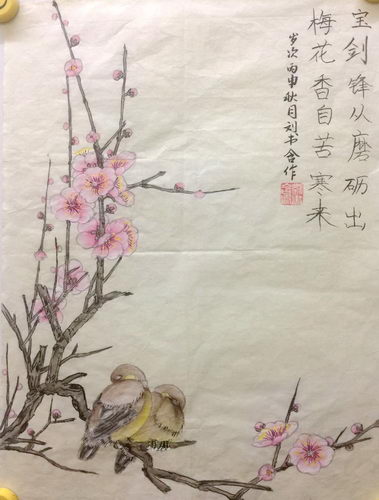 宝剑锋从磨砺出
梅花香自苦寒来
岁次丙申秋月刘书含作